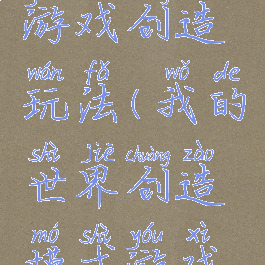 游戏创造
wán fǎ wǒ de
玩法(我的
shì jiè chuàng zào
世界创造
mó shì yóu xì
模式游戏